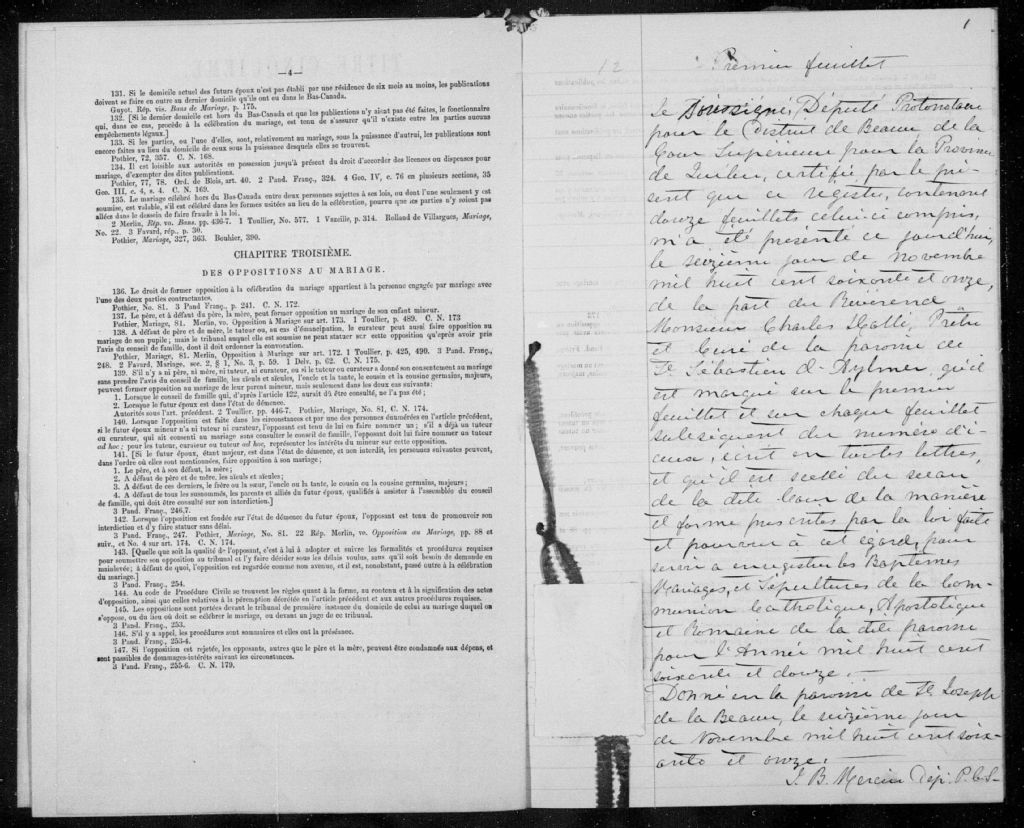 —4—
131. Si le domicile actuel des futurs époux n'est pas établi par une résidence de six mois au moins, les publications
doivent se faire en outre au dernier domicile qu'ils ont eu dans le Bas-Canada.
Guyot. Rép. vis. Bans de Mariage, p. 175.
132. [Si le dernier domicile est hors du Bas-Canada et que les publications n'y aient pas été faites, le fonctionnaire
qui, dans ce cas, procède à la célébration du mariage, est tenu de s'assurer qu'il n'existe entre les parties aucuns
empêchements légaux.]
133. Si les parties, ou l'une d'elles, sont, relativement au mariage, sous la puissance d'autrui, les publications sont
encore faites au lieu du domicile de ceux sous la puissance desquels elles se trouvent.
Pothier, 72, 357. C. N. 168.
134. Il est loisible aux autorités en possession jusqu'à présent du droit d'accorder des licences ou dispenses pour
mariage, d'exempter des dites publications.
Pothier, 77, 78. Ord. de Blois, art. 40. 2 Pand. Franç., 324. 4 Geo. IV, c. 76 en plusieurs sections, 35
Geo. III, c. 4, s. 4. C. N. 169.
135. Le mariage célébré hors du Bas-Canada entre deux personnes sujettes à ses lois, ou dont l'une seulement y est
soumise, est valable, s'il est célébré dans les formes usitées au lieu de la célébration, pourvu que les parties n'y soient pas
allées dans le dessein de faire fraude à la loi.
2 Merlin, Rép. vo. Bans. pp. 436-7. 1 Toullier, No. 577. 1 Vazeille, p. 314. Rolland de Villargues, Mariage,
No. 22. 3 Favard, rép., p. 30.
Pothier, Mariage, 327, 363. Bouhier, 390.
CHAPITRE TROISIÈME.
DES OPPOSITIONS AU MARIAGE.
136. Le droit de former opposition à la célébration du mariage appartient à la personne engagée par mariage avec
l'une des deux parties contractantes.
Pothier, No. 81. 3 Pand Franç., p. 241. C. N. 172.
137. Le père, et à défaut du père, la mère, peut former opposition au mariage de son enfant mineur.
Pothier, Mariage, 81. Merlin, vo. Opposition à Mariage sur art. 173. 1 Toullier, p. 489. C. N. 173
138. A défaut de père et de mère, le tuteur ou, au cas d'émancipation, le curateur peut aussi faire opposition au
mariage de son pupile; mais le tribunal auquel elle est soumise ne peut statuer sur cette opposition qu'après avoir pris
l'avis du conseil de famille, dont il doit ordonner la convocation.
Pothier, Mariage, 81. Merlin, Opposition à Mariage sur art. 172. 1 Toullier, p. 425, 490. 3 Pand. Franç.,
248. 2 Favard, Mariage, sec. 2, § 1, No. 3, p. 59. 1 Delv. p. 62. C. N. 175.
139. S'il n'y a ni père, ni mère, ni tuteur, ni curateur, ou si le tuteur ou curateur a donné son consentement au mariage
sans prendre l'avis du conseil de famille, les aïeuls et aïeules, l'oncle et la tante, le cousin et la cousine germains, majeurs,
peuvent former opposition au mariage de leur parent mineur, mais seulement dans les deux cas suivants:
1. Lorsque le conseil de famille qui, d'après l'article 122, aurait dû être consulté, ne l'a pas été;
2. Lorsque le futur époux est dans l'état de démence.
Autorités sous l'art. précédent. 2 Toullier. pp. 446-7. Pothier, Mariage, No. 81, C. N. 174.
140. Lorsque l'opposition est faite dans les circonstances et par une des personnes énumérées en l'article précédent,
si le futur époux mineur n'a ni tuteur ni curateur, l'opposant est tenu de lui en faire nommer un; s'il a déjà un tuteur
ou curateur, qui ait consenti au mariage sans consulter le conseil de famille, l'opposant doit lui faire nommer un tuteur
ad hoc; pour les tuteur, curateur ou tuteur ad hoc, représenter les intérêts du mineur sur cette opposition.
141. [Si le futur époux, étant majeur, est dans l'état de démence, et non interdit, les personnes suivantes peuvent,
dans l'ordre où elles sont mentionnées, faire opposition à son mariage;
1. Le père, et à son défaut, la mère;
2. A défaut de père et de mère, les aïeuls et aïeules;
3. A défaut de ces derniers, le frère ou la sœur, l'oncle ou la tante, le cousin ou la cousine germains, majeurs;
4. A défaut de tous les susnommés, les parents et alliés du futur époux, qualifiés à assister à l'assemblée du conseil
de famille, qui doit être consulté sur son interdiction.]
3 Pand. Franç., 246,7.
142. Lorsque l'opposition est fondée sur l'état de démence du futur époux, l'opposant est tenu de promouvoir son
interdiction et d'y faire statuer sans délai.
3 Pand. Franç., 247. Pothier, Mariage, No. 81. 22 Rép. Merlin, vo. Opposition au Mariage, pp. 88 et
suiv., et No. 4 sur art. 174. C. N. 174.
143. [Quelle que soit la qualité de l'opposant, c'est à lui à adopter et suivre les formalités et procédures requises
pour soumettre son opposition au tribunal et l'y faire décider sous les délais voulus, sans qu'il soit besoin de demande en
mainlevée; à défaut de quoi, l'opposition est regardée comme non avenue, et il est, nonobstant, passé outre à la célébration
du mariage.]
3 Pand. Franç., 254.
144. Au code de Procédure Civile se trouvent les règles quant à la forme, au contenu et à la signification des actes
d'opposition, ainsi que celles relatives à la péremption décrétée en l'article précédent et aux autres procédures requises.
145. Les oppositions sont portées devant le tribunal de première instance du domicile de celui au mariage duquel on
s'oppose, ou du lieu où doit se célébrer le mariage, ou devant un juge de ce tribunal.
3 Pand. Franç., 253.
146. S'il y a appel, les procédures sont sommaires et elles ont la préséance.
3 Pand. Franç., 253-4.
147. Si l'opposition est rejetée, les opposants, autres que le père et la mère, peuvent être condamnés aux dépens, et
sont passibles de dommages-intérêts suivant les circonstances.
3 Pand. Franç., 255-6. C. N. 179.
1
Premier feuillet
Le Soussigné, Député Protonotaire
pour le District de Beauce de la
Cour Supérieure pour la Province
de Québec, certifie par le pré-
sent que ce registre, contenant
douze feuillets celui-ci compris,
m'a été présenté ce jourd'hui,
le seizième jour de novembre
mil huit cent soixante et onze,
de la part du Révérend
Monsieur Charles Hallé, Prêtre
et Curé de la paroisse de
St Sébastien d'Aylmer, qu'il
est marqué sur le premier
feuillet et sur chaque feuillet
subséquent du numéro d'i-
ceux, écrit en toutes lettres,
et qu'il est scellé du sceau
de la dite Cour de la manière
et forme prescrites par la loi faite
et pourvue à cet égard, pour
servir à enregistrer les Baptêmes
Mariages, et Sépultures de la Com-
munion Catholique, Apostolique
et Romaine de la dite paroisse
pour l'Année mil huit cent
soixante et douze.
Donné en la paroisse de St Joseph
de la Beauce, le seizième jour
de Novembre mil huit cent soix-
ante et onze.
J. B. Mercier Dép. P. C. S.